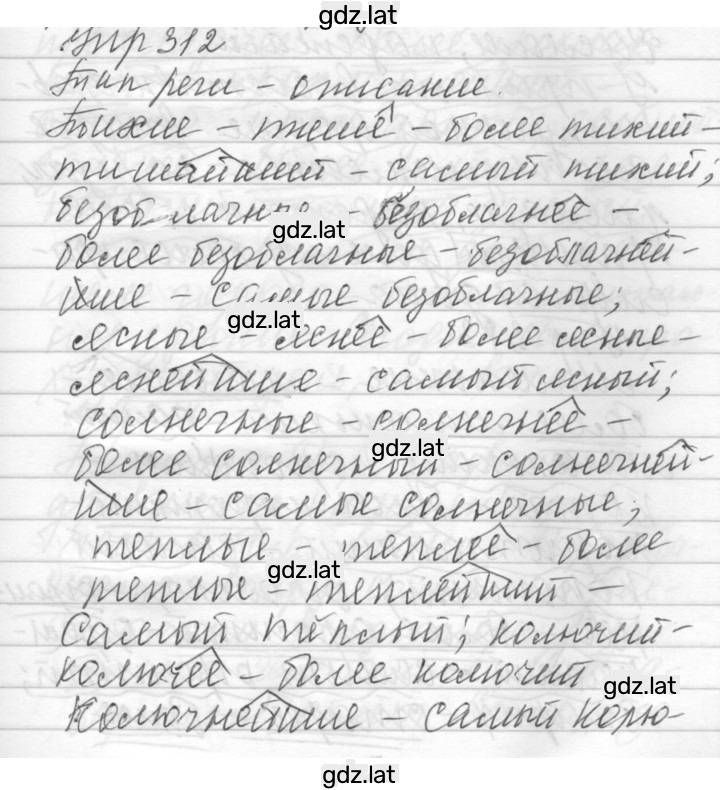 gdz.lat
Упр 312
Тип речи - описание.
Тихие - тише - более тихий -
тишайший - самый тихий;
безоблачные - безоблачнее -
gdz.lat
более безоблачные - безоблачней-
йшие - самые безоблачные;
gdz.lat
ясные - яснее - более ясные -
яснейшие - самый ясный;
солнечные - солнечнее -
gdz.lat
более солнечный - солнечней-
шие - самые солнечные;
теплые - теплее - более
gdz.lat
теплые - теплейший -
самый тёплый; колючий -
колючее - более колючий
gdz.lat
Колючнейшие - самый колю-
gdz.lat